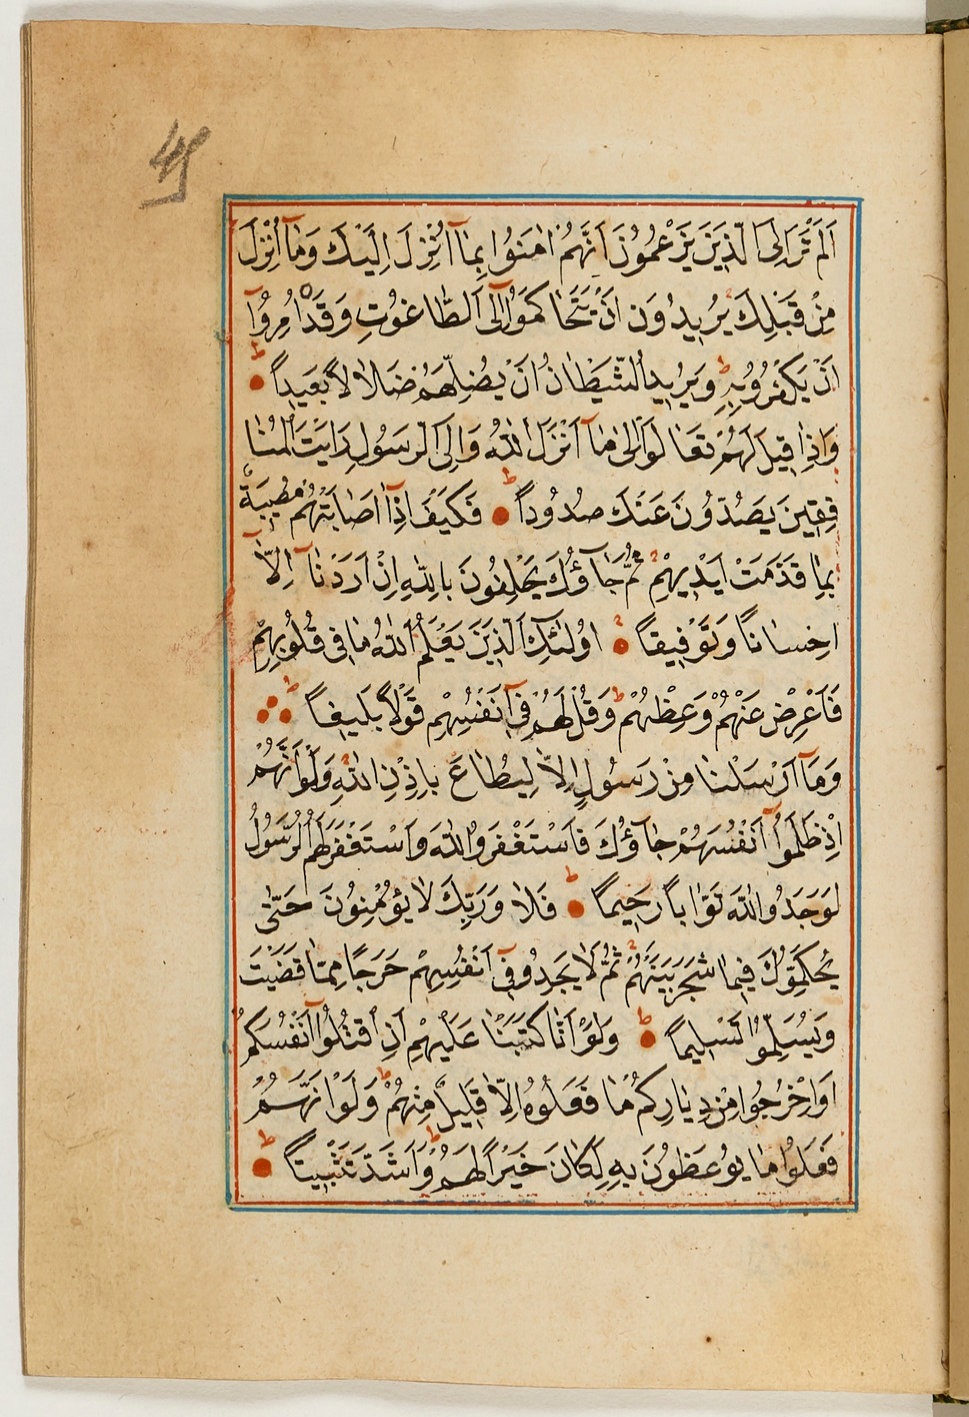 اَلَمْ تَرَ اِلَى الَّذِينَ يَزْعُمُونَ اَنَّهُمْ اٰمَنُوا بِمَآ اُنْزِلَ اِلَيْكَ وَمَآ اُنْزِلَ
مِنْ قَبْلِكَ يُرِيدُونَ اَنْ يَتَحَاكَمُوٓا اِلَى الطَّاغُوتِ وَقَدْ اُمِرُوٓا
اَنْ يَكْفُرُوا بِهِ وَيُرِيدُ الشَّيْطَانُ اَنْ يُضِلَّهُمْ ضَلَالًا بَعِيداً
وَاِذَا قِيلَ لَهُمْ تَعَالَوْا اِلَى مَآ اَنْزَلَ اللّٰهُ وَاِلَى الرَسُولِ رَاَيْتَ الْمُنَا
فِقِينَ يَصُدُّونَ عَنْكَ صُدُوداً فَكَيْفَ اِذَآ اَصَابَتْهُمْ مُصِيبَةٌ
بِمَا قَدَّمَتْ اَيْدِيهِمْ ثُمَّ جَآؤُكَ يَحْلِفُونَ بِاللّٰهِ اِنْ اَرَدْنَآ اِلَّآ
اِحْسَانًا وَتَوْفِيقًا اُولٰئِكَ الَّذِينَ يَعْلَمُ اللّٰهُ مَا فِى قُلُوبِهِمْ
فَاَعْرِضْ عَنْهُمْ وَعِظْهُمْ وَقُلْ لَهُمْ فِىٓ اَنْفُسِهِمْ قَوْلًا بَلِيغًا
وَمَآ اَرْسَلْنَا مِنْ رَسُولٍ اِلَّا لِيُطَاعَ بِاِذْنِ اللّٰهِ وَلَوْ اَنَّهُمْ
اِذْ ظَلَمُوٓا اَنْفُسَهُمْ جَآؤُكَ فَاسْتَغْفَرُوا اللّٰهَ وَاسْتَغْفَرَ لَهُمُ الرَّسُولُ
لَوَجَدُوا اللّٰهَ تَوَّاباً رَحِيماً فَلَا وَرَبِّكَ لَا يُؤْمِنُونَ حَتّٰى
يُحَكِّمُوكَ فِيمَا شَجَرَ بَيْنَهُمْ ثُمَّ لَا يَجِدُوا فِىٓ اَنْفُسِهِمْ حَرَجًا مِمَّا قَضَيْتَ
وَيُسَلِّمُوا تَسْلِيماً وَلَوْ اَنَّا كَتَبْنَا عَلَيْهِمْ اَنِ اقْتُلُوٓا اَنْفُسَكُمْ
اَوِ اخْرُجُوا مِنْ دِيَارِكُمْ مَا فَعَلُوهُ اِلَّا قَلِيلٌ مِنْهُمْ وَلَوْ اَنَّهُمْ
فَعَلُوا مَا يُوعَظُونَ بِهِ لَكَانَ خَيْراً لَهُمْ وَاَشَدَّ تَثْبِيتًا